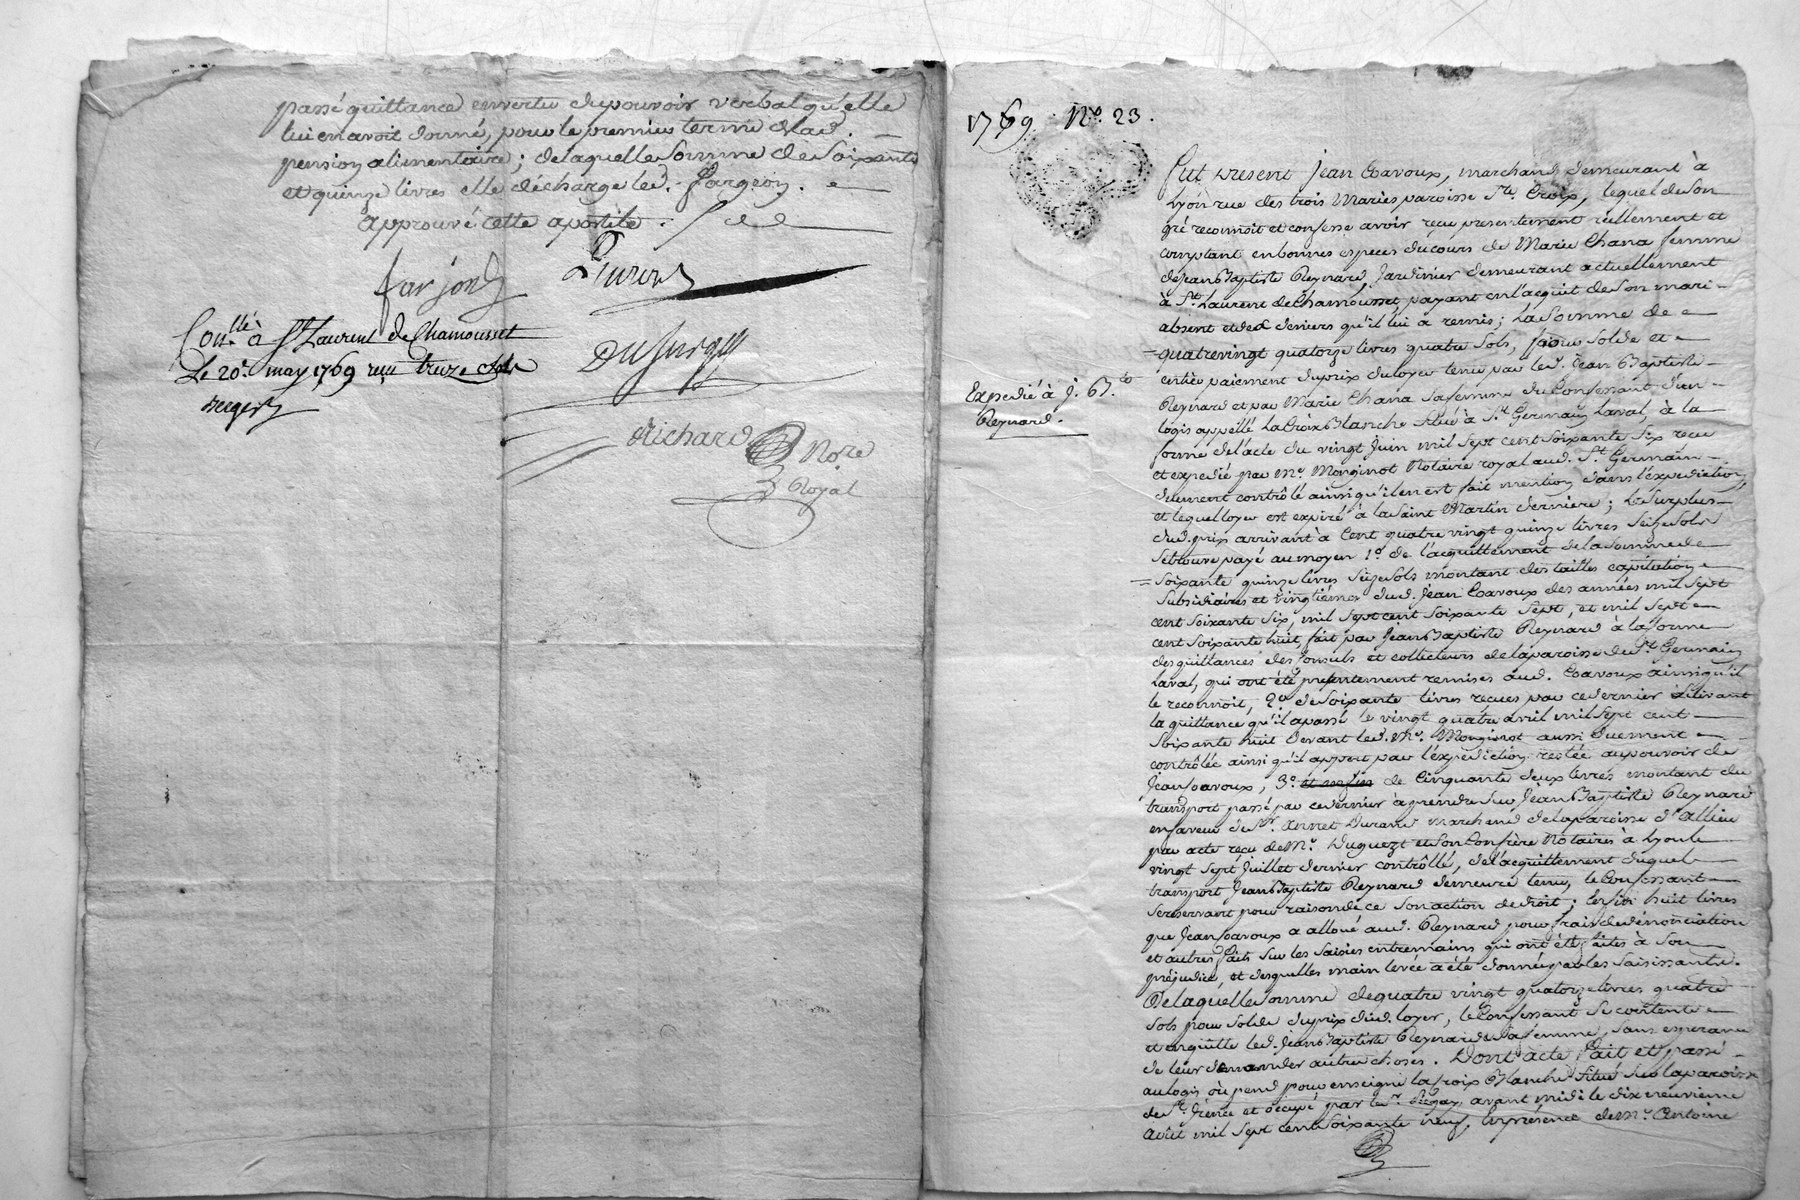 passé quittance en vertu du pouvoir verbal qu'elle
lui en avoit donné, pour le premier terme de lad.
pension alimentaire; de laquelle somme de soixante
et quinze livres elle décharge led. fargeon.
approuvé cette apostile.
farjond
Dusurgey
Conllé à St Laurent de Chamousset
Le 20e may 1769 reçu treize sols
Richard Nore
Royal
1769. No. 23.
Expedié à J. Bte
Reynard.
Fut present Jean Coavoux, marchand demeurant à
Lyon rue des trois Maries paroisse Ste Croix, lequel de son
gré reconnoit et confesse avoir reçu presentement réellement et
comptant en bonnes especes du cours de Marie Chana femme
de Jean Baptiste Reynard, Jardinier demeurant actuellement
à St Laurent de Chamousset, payant en l'acquit de son mari
absent et des deniers qu'il lui a remis; la somme de
quatrevingt quatorze livres quatre sols, pour solde et
entier paiement du prix du loyer tenu par led. Jean Baptiste
Reynard et par Marie Chana sa femme du Confessant d'un
logis appellé La Croix Blanche situé à St Germain Laval, à la
forme de l'acte du vingt Juin mil sept cent soixante six reçu
et expedié par Me Monginot Notaire royal aud. St Germain
duement contrôlé ainsi qu'il en est fait mention dans l'expedition,
et lequel loyer est expiré à la Saint Martin derniere; le surplus
dud. prix arrivant à Cent quatre vingt quinze livres seize sols
se trouve payé au moyen 1o de l'acquittement de la somme de
soixante quinze livres seize sols montant des tailles capitation
subsidiaires et vingtiemes dud. Jean Coavoux des années mil sept
cent soixante six, mil sept cent soixante sept, et mil sept
cent soixante huit, fait par Jean Baptiste Reynard à la forme
des quittances des Consuls et collecteurs de la paroisse de St Germain
Laval, qui ont été presentement remises aud. Coavoux ainsi qu'il
le reconnoit, 2o de soixante livres reçues par ce dernier suivant
la quittance qu'il a passé le vingt quatre avril mil sept cent
soixante huit devant led. Me Monginot aussi duement
contrôlée ainsi qu'il appert par l'expediction restée au pouvoir de
Jean Coavoux, 3o et enfin de Cinquante deux livres montant du
transport passé par ce dernier à prendre sur Jean Baptiste Reynard
en faveur de Sr. Annet Durand marchand de la paroisse d'Allieu
par acte reçu de Me Duguezt et son Confrère Notaires à Lyon le
vingt sept Juillet dernier contrôllé, de l'acquittement duquel
transport Jean Baptiste Reynard demeure tenu, le Confessant
se reservant pour raison de ce son action de droit; les huit livres
que Jean Coavoux a alloué aud. Reynard pour frais de dénonciation
et autres faits sur les saisies entremains qui ont été faites à son
préjudice, et desquelles main levée a été donnée par les saisissants.
De laquelle somme de quatre vingt quatorze livres quatre
sols pour solde du prix dud. loyer, le Confessant se contente
et en quitte led. Jean Baptiste Reynard et sa femme, sans esperance
de leur demander autre choses. Dont acte Fait et passé
au logis où pend pour enseigne la Croix Blanche situé sur la paroisse
de St. Irénée et occupé par le Sr avant midi le dix neuvieme
Août mil sept cent soixante neuf, En présence de Me. Antoine